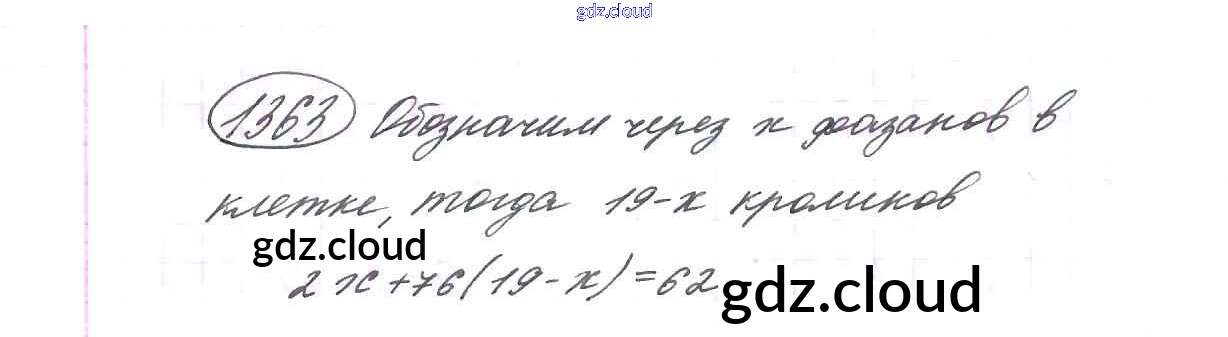 gdz.cloud
1363 Обозначим через x фазанов в
клетке, тогда 19-x кроликов
gdz.cloud
2x+76(19-x)=62
gdz.cloud